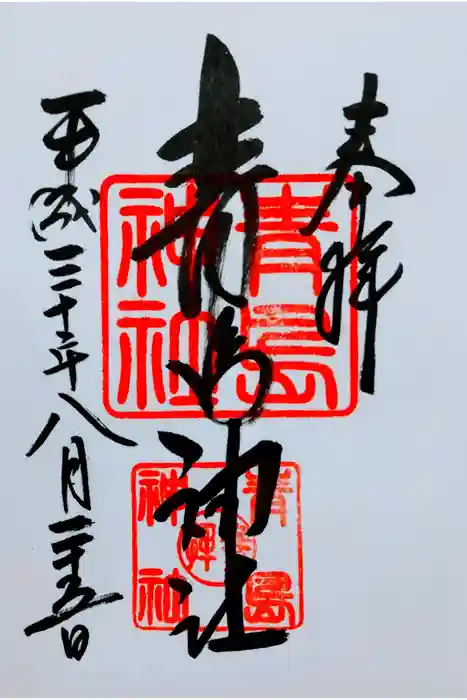 奉拝
青島神社
青島
神社
青島
神社
平成三十年八月二十五日